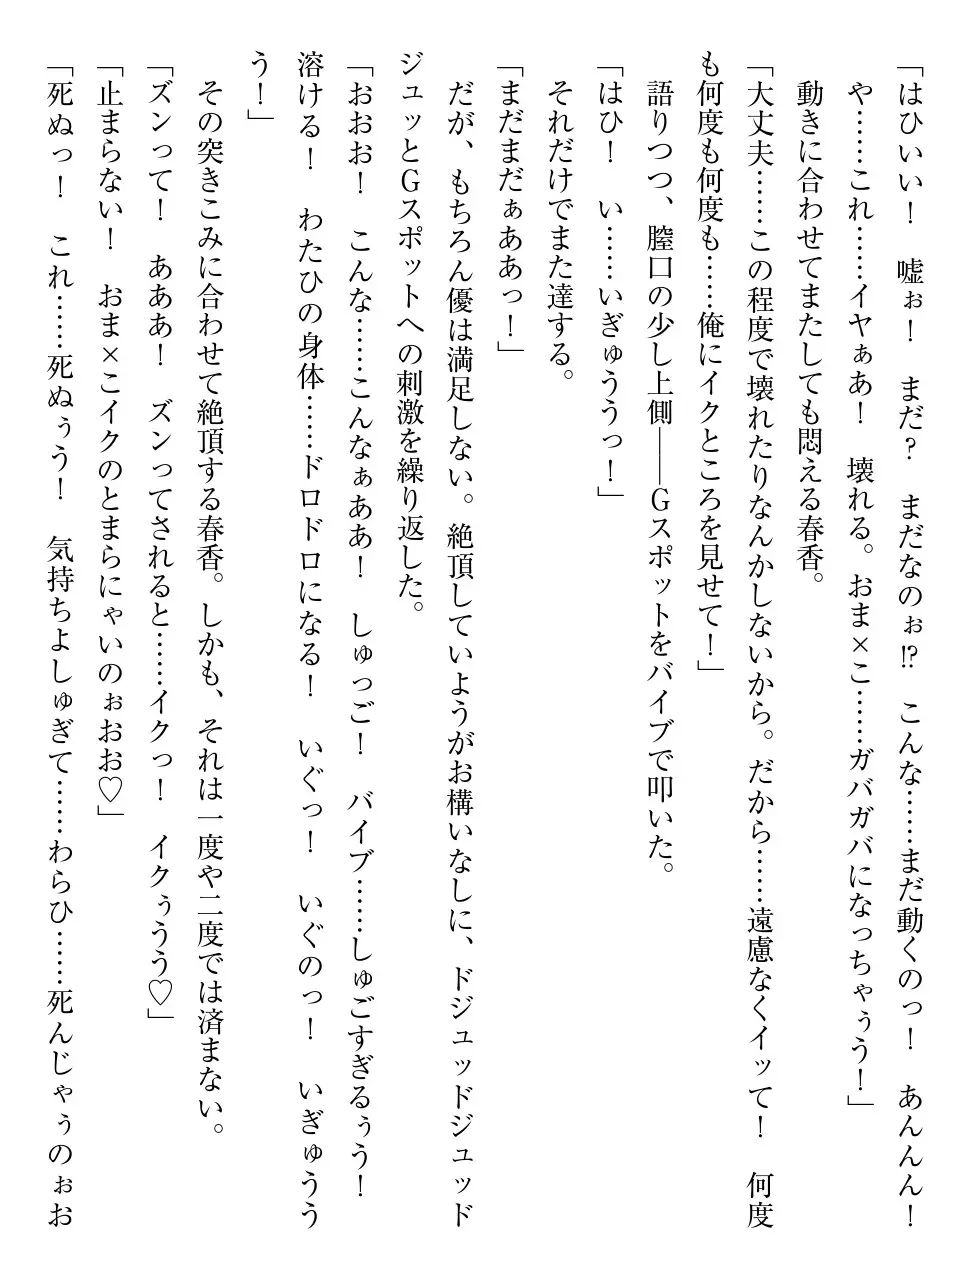 「はひいい！　嘘ぉ！　まだ？　まだなのぉ!?　こんな……まだ動くのっ！　あんんん！
や……これ……イヤぁあ！　壊れる。おま×こ……ガバガバになっちゃぅう！」
　動きに合わせてまたしても悶える春香。
「大丈夫……この程度で壊れたりなんかしないから。だから……遠慮なくイッて！　何度
も何度も何度も……俺にイクところを見せて！」
　語りつつ、膣口の少し上側――Ｇスポットをバイブで叩いた。
「はひ！　い……いぎゅううっ！」
　それだけでまた達する。
「まだまだぁああっ！」
　だが、もちろん優は満足しない。絶頂していようがお構いなしに、ドジュッドジュッド
ジュッとＧスポットへの刺激を繰り返した。
「おおお！　こんな……こんなぁああ！　しゅっご！　バイブ……しゅごすぎるぅう！
溶ける！　わたひの身体……ドロドロになる！　いぐっ！　いぐのっ！　いぎゅうう
う！」
　その突きこみに合わせて絶頂する春香。しかも、それは一度や二度では済まない。
「ズンって！　あああ！　ズンってされると……イクっ！　イクぅうう♡」
「止まらない！　おま×こイクのとまらにゃいのぉおお♡」
「死ぬっ！　これ……死ぬぅう！　気持ちよしゅぎて……わらひ……死んじゃぅのぉお